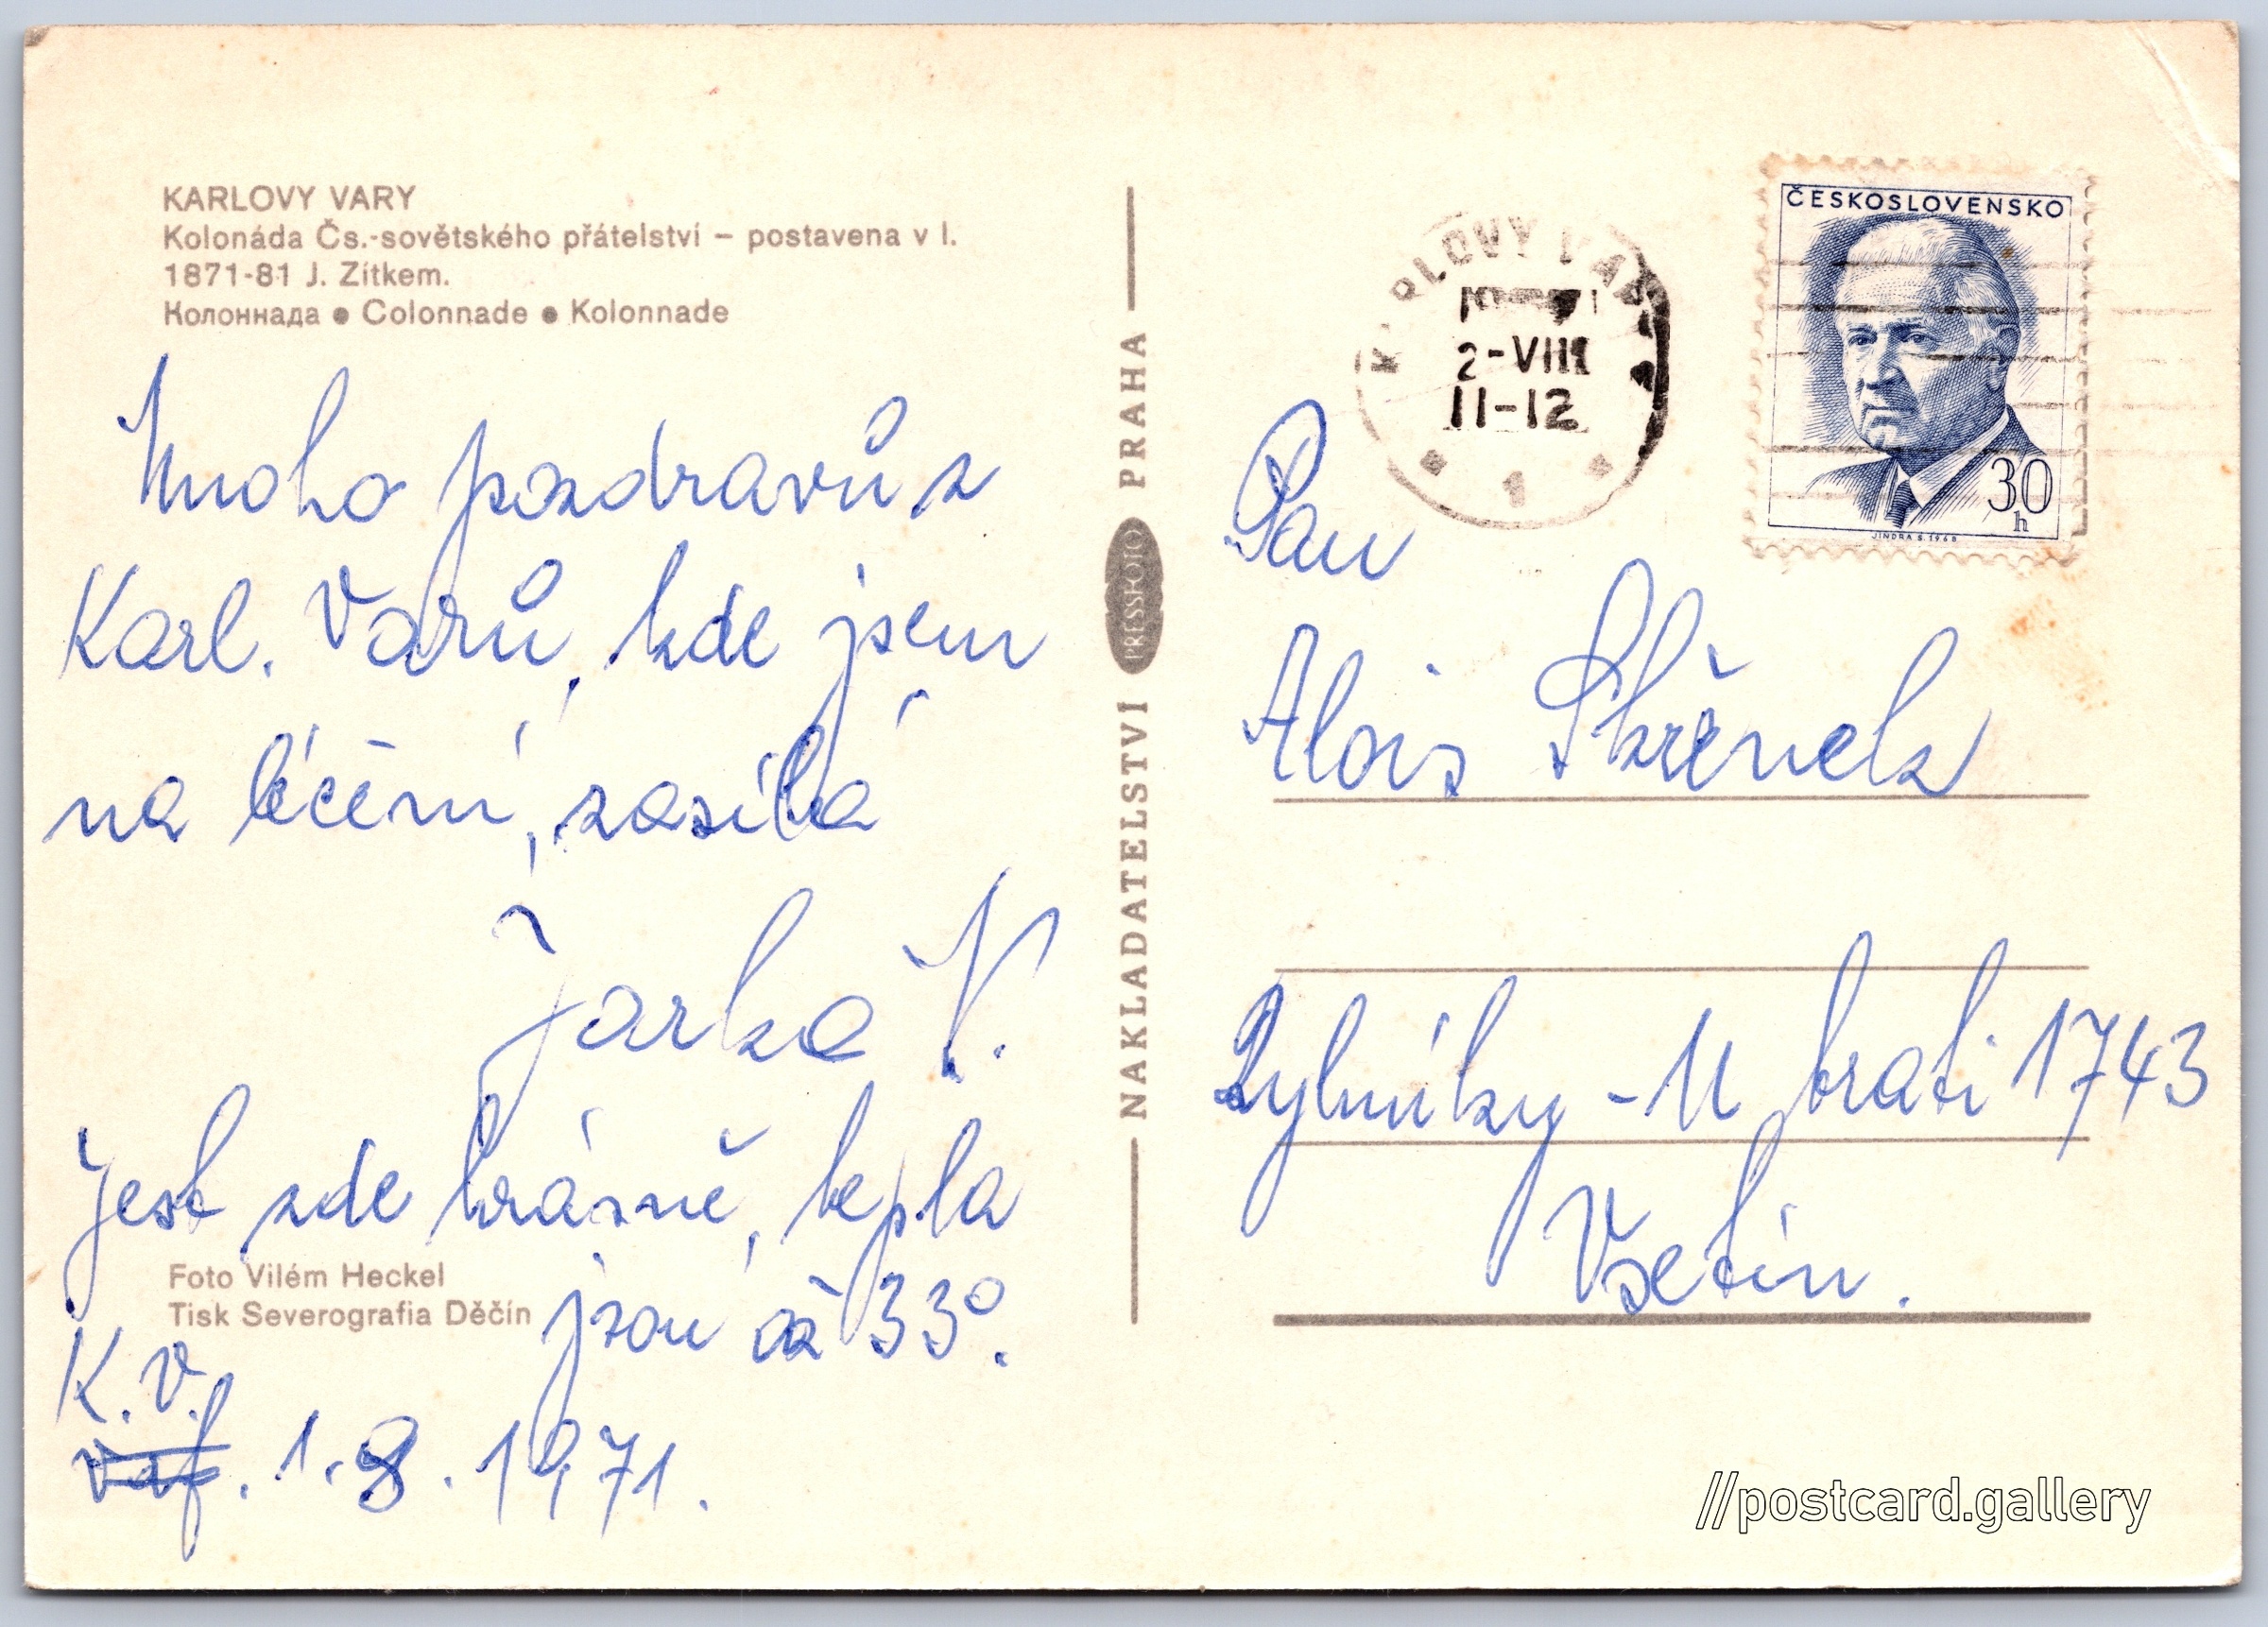 KARLOVY VARY
Kolonáda Čs.-sovětského přátelství – postavena v l.
1871-81 J. Zítkem.
Колоннада ● Colonnade ● Kolonnade
Mnoho pozdravů z
Karl. Varů, kde jsem
na léčení, zasílá
Jarka V.
Jest zde krásně, tepla
jsou až 33°.
K.V.
1.8.1971.
Foto Vilém Heckel
Tisk Severografia Děčín
NAKLADATELSTVÍ PRESSFOTO PRAHA
KARLOVY VARY
2-VIII
11-12
1
ČESKOSLOVENSKO
30
h
JINDRA S. 1968
Pan
Alois Skřenek
Rybníky - U trati 1743
Vsetín.
//postcard.gallery